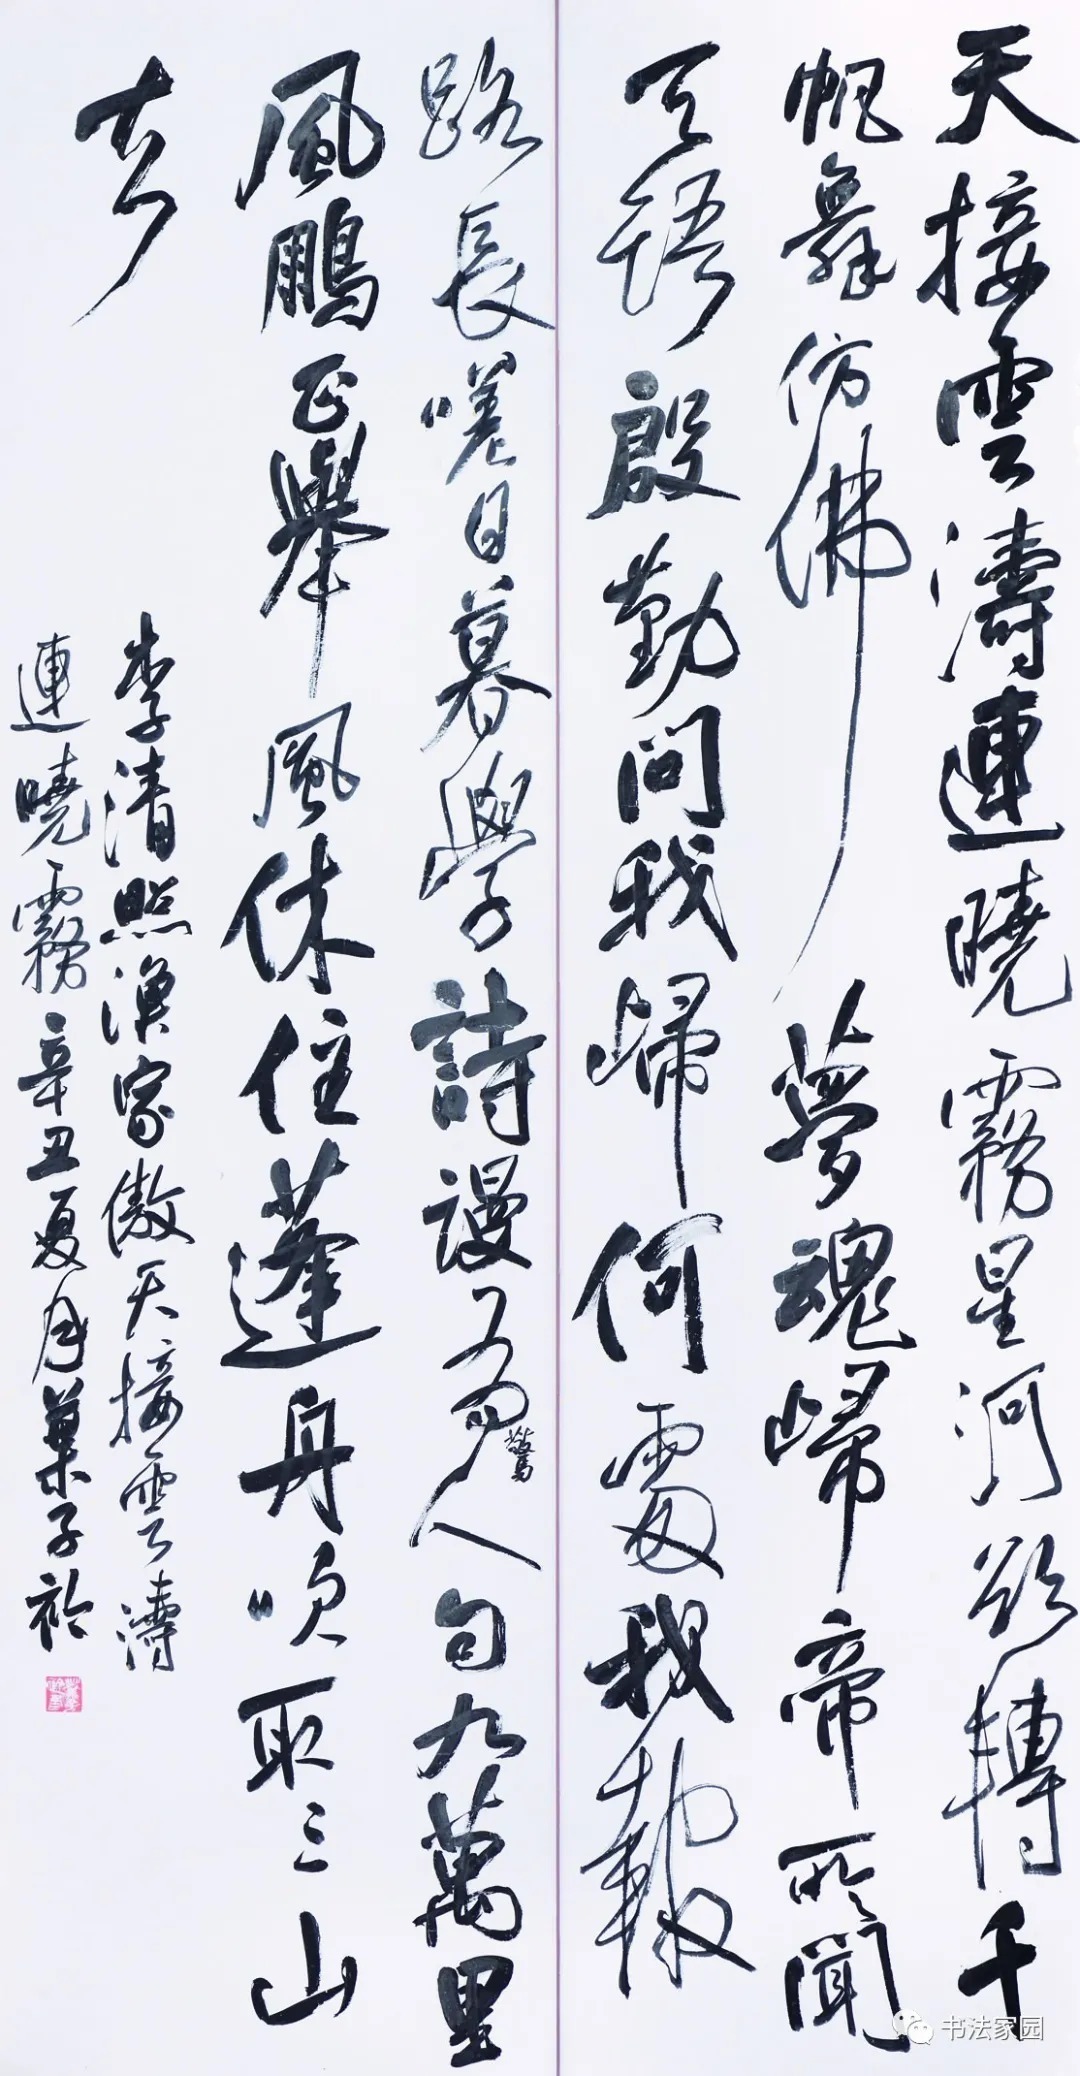 天接雲濤連曉霧星河欲轉千
帆舞仿佛夢魂歸帝所聞
天語殷勤問我歸何處我報
路長嗟日暮學詩謾有驚人句九萬里
風鵬正舉風休住蓬舟吹取三山
去
李清照漁家傲天接雲濤
連曉霧辛丑夏月菓子
书法家园